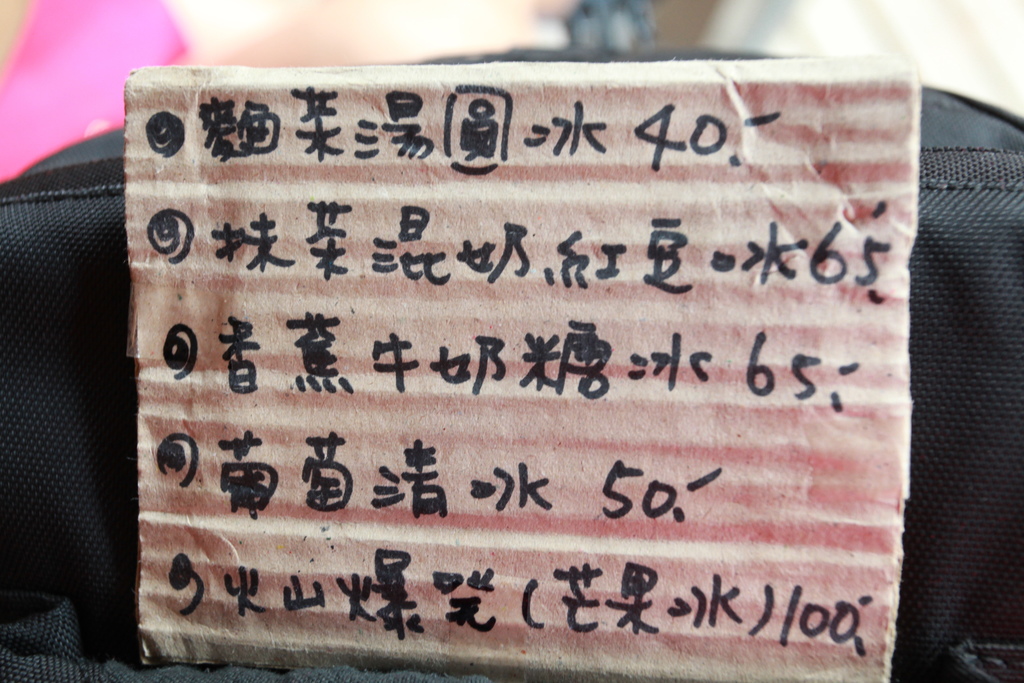 麵茶湯圓冰 40.-
抹茶混奶紅豆冰 65.-
香蕉牛奶糖冰 65.-
葡萄清冰 50.-
火山爆発(芒果冰) 100.-